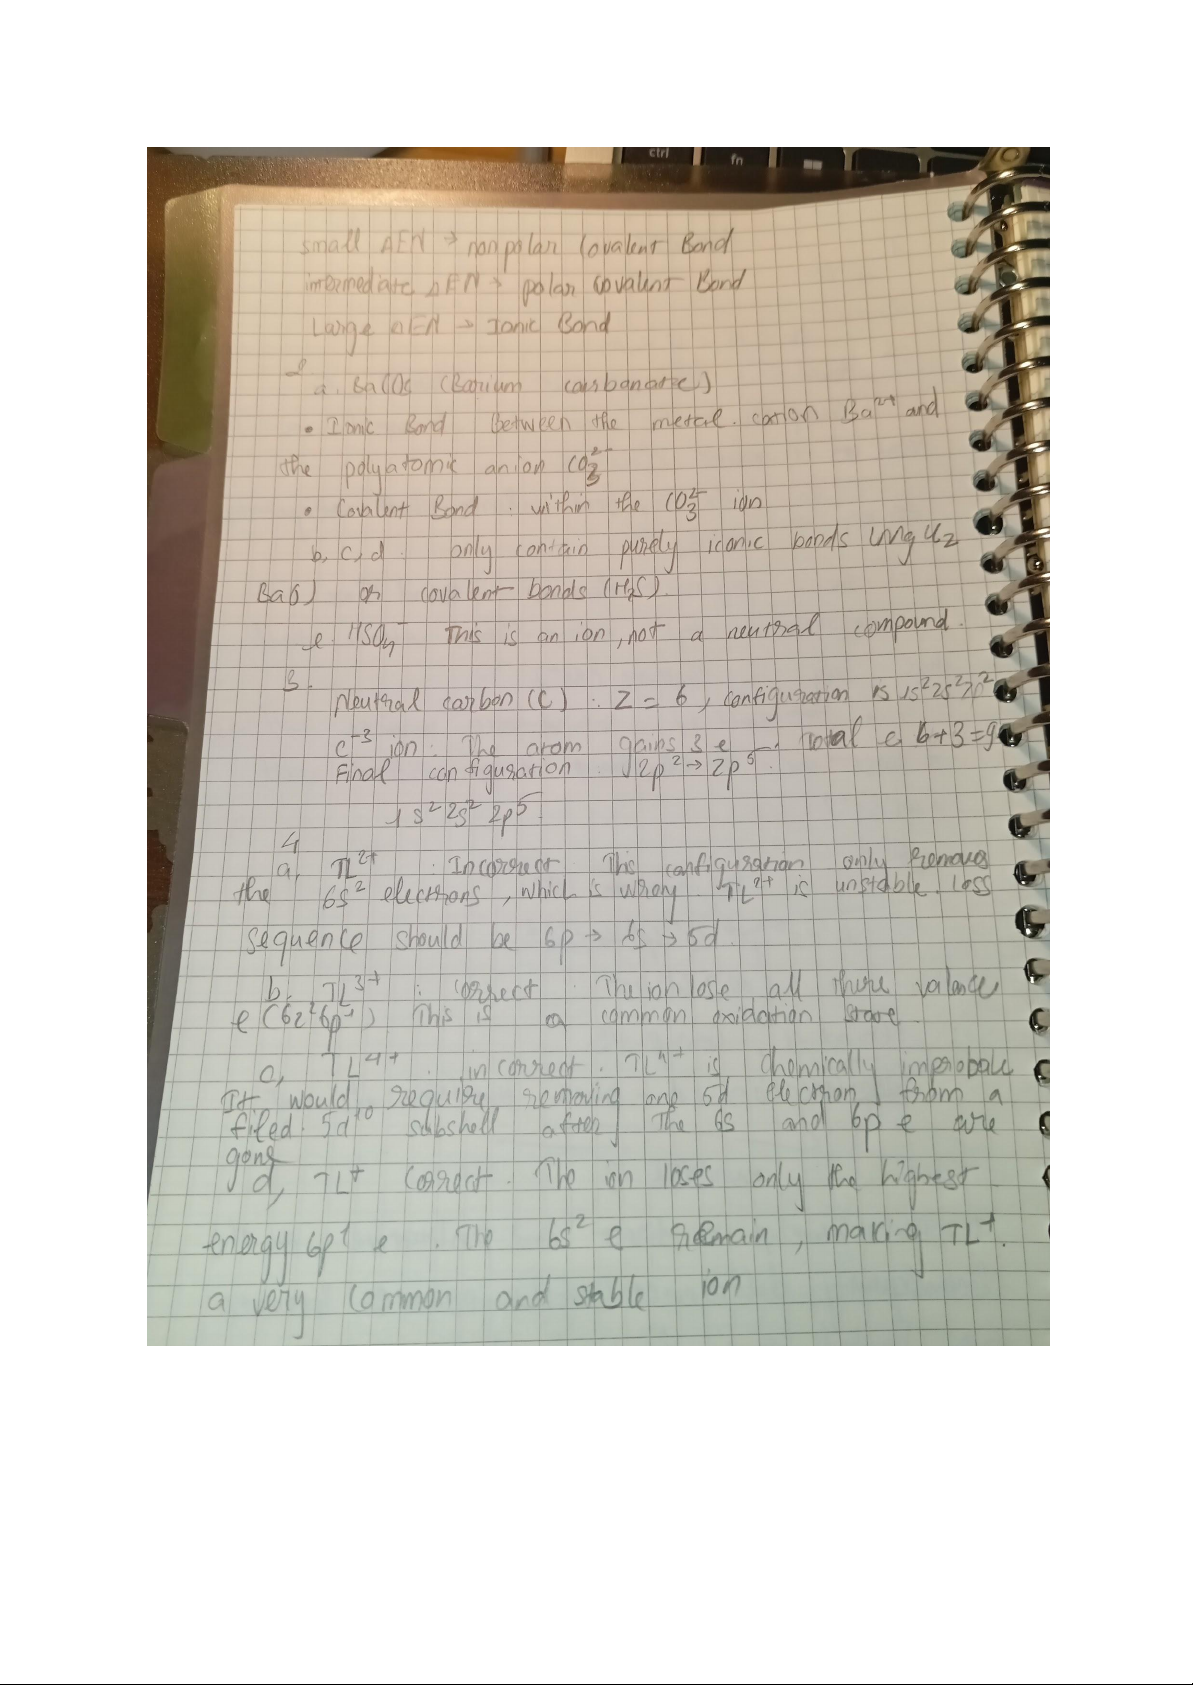 ctrl
fn
small ΔEN → nonpolar Covalent Bond
intermediate ΔEN → polar covalent Bond
Large ΔEN → Ionic Bond
2
a. BaCO3 (Barium carbonate)
• Ionic Bond Between the metal cation Ba2+ and
the polyatomic anion CO3 2-
• Covalent Bond : within the CO3 2- ion
b, c, d : only contain purely iconic bonds
or covalent bonds (H2S).
e. HSO4- This is an ion, not a neutral compound.
3.
Neutral carbon (C) : Z = 6, configuration is 1s² 2s² 2p²
C-3 ion : The atom gains 3 e-. Total e 6+3=9
Final configuration : 2p² → 2p⁵.
1s² 2s² 2p⁵
4
a, TL2+ : Incorrect. This configuration only Removes
the 6s² electrons, which is wrong. TL2+ is unstable. Loss
sequence should be 6p → 6s → 5d.
b, TL3+ : correct. The ion lose all three valance
e (6z² 6p¹). This is a common oxidation state
c, TL4+ : incorrect. TL4+ is chemically improbale
It would require removing one 5d electron from a
filed 5d¹⁰ subshell after the 6s and 6p e are
gone
d, TL+ Correct. The ion loses only the highest
energy 6p¹ e. The 6s² e Remain, making TL+.
a very common and stable ion